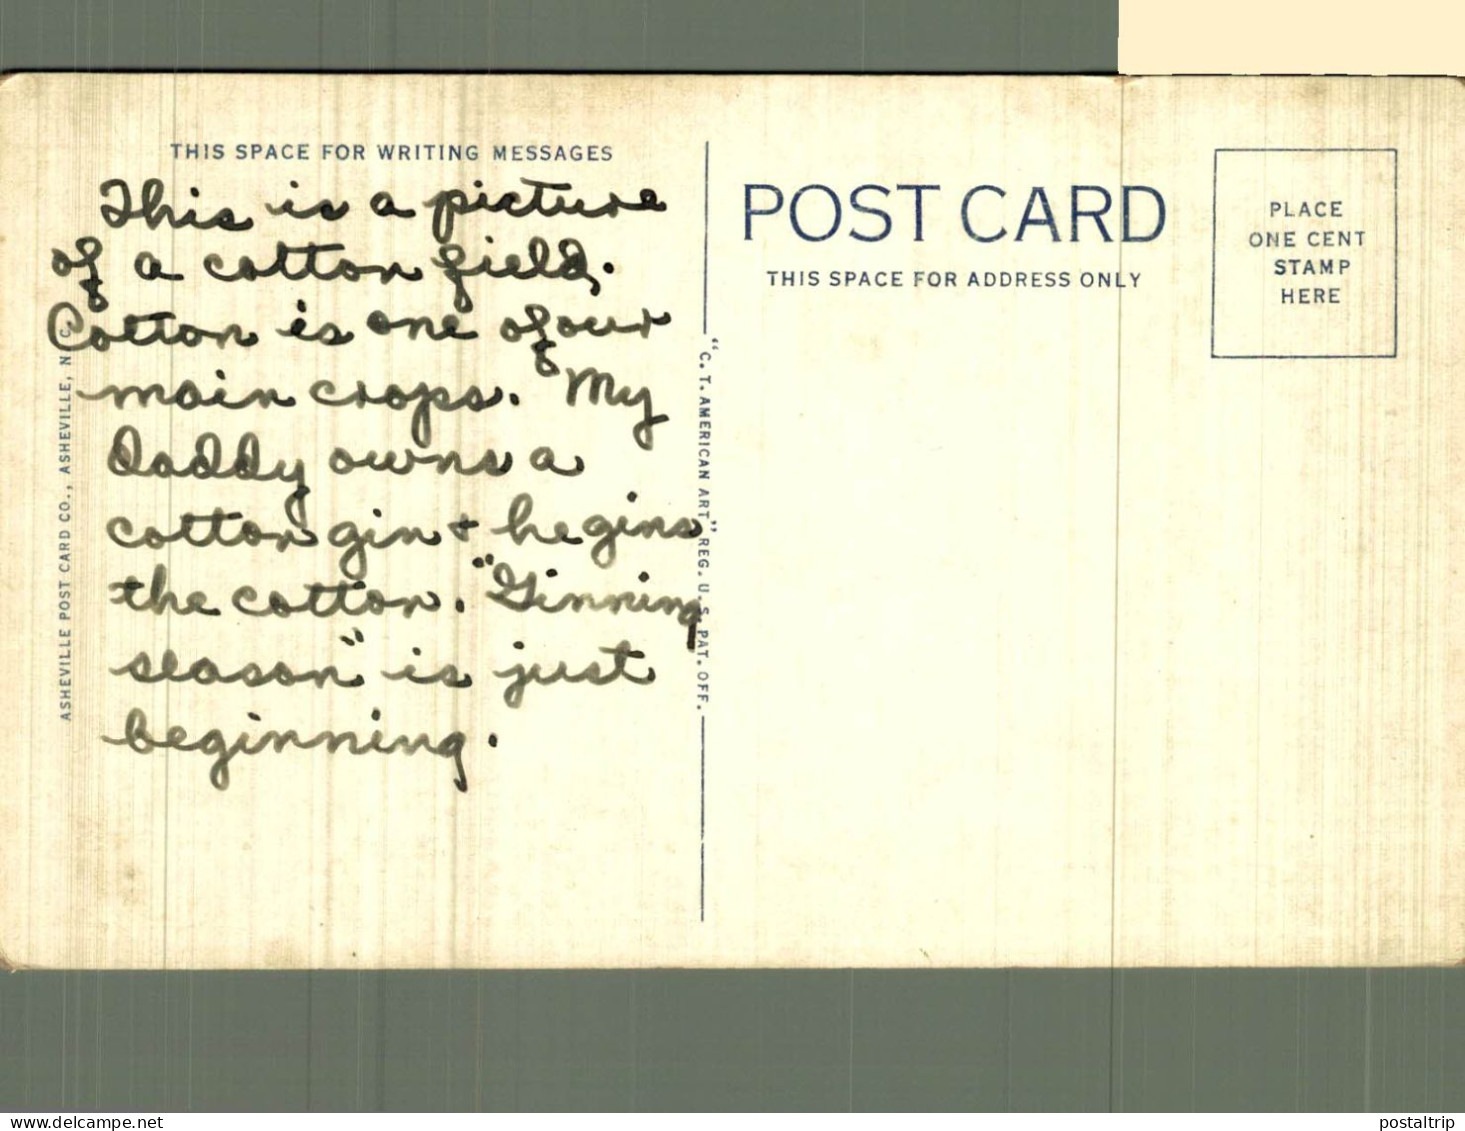 THIS SPACE FOR WRITING MESSAGES
This is a picture
of a cotton field.
Cotton is one of our
main crops. My
daddy owns a
cotton gin + he gins
the cotton. "Ginning
season" is just
beginning.
ASHEVILLE POST CARD CO., ASHEVILLE, N. C.
"C. T. AMERICAN ART" REG. U. S. PAT. OFF.
POST CARD
THIS SPACE FOR ADDRESS ONLY
PLACE
ONE CENT
STAMP
HERE
Host on www.delcampe.net
postaltrip